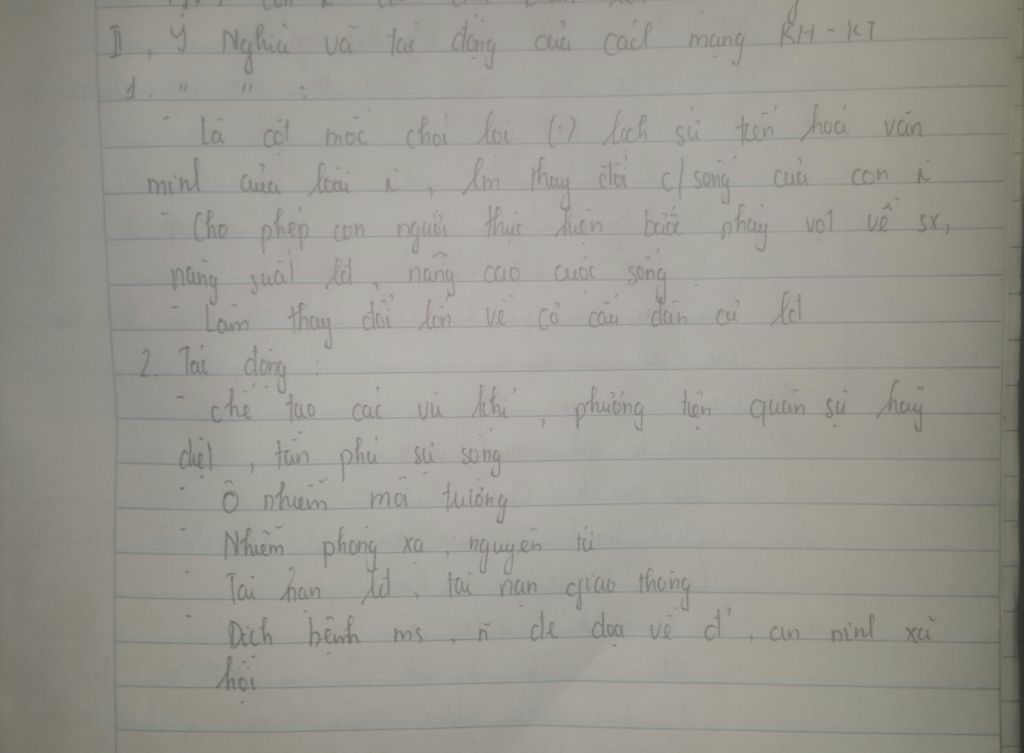 II, Ý Nghĩa và tác động của cách mạng KH-KT
1. " " :
- Là cột mốc chói lọi (:) lịch sử tiến hoá văn
minh của loài ng̀, làm thay đổi c/sống của con ng̀
- Cho phép con người thực hiện bước nhảy vọt về sx,
năng suất lđ, nâng cao cuộc sống
- Làm thay đổi lớn về cơ cấu dân cư lđ
2. Tác động :
- chế tạo các vũ khí, phương tiện quân sự hủy
diệt, tàn phá sự sống
- Ô nhiễm môi trường
Nhiễm phóng xạ, nguyên tử
- Tai nạn lđ, tai nạn giao thông
- Dịch bệnh ms, đe doạ về đ², an ninh xã
hội